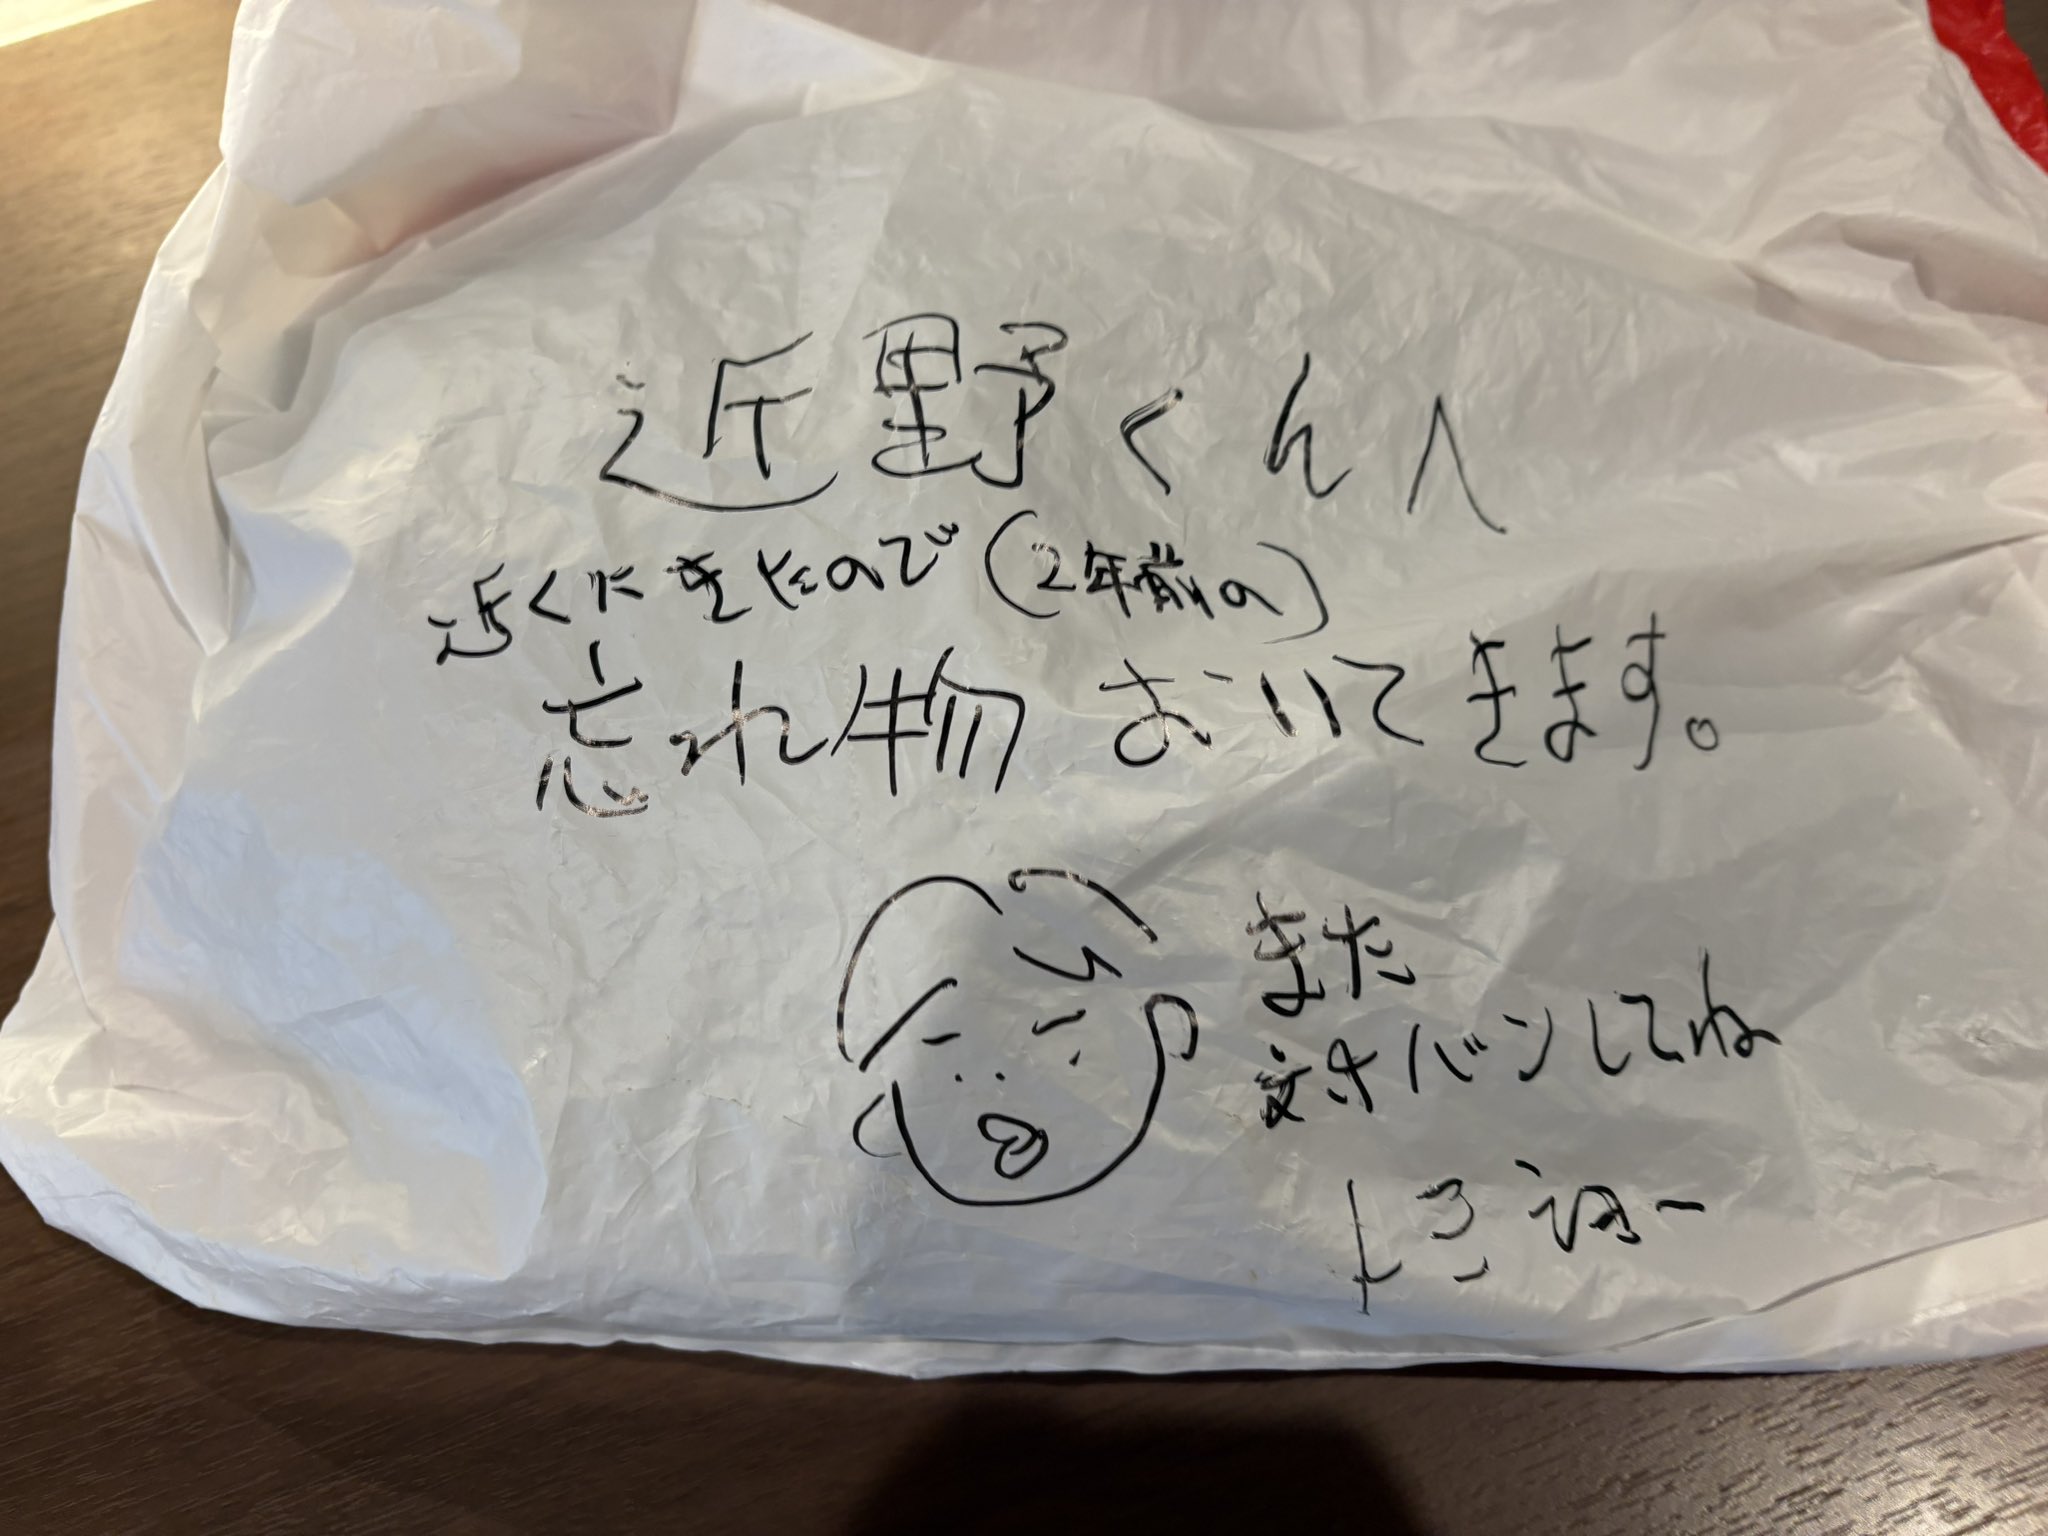 近野くんへ
近くにきたので(2年前の)
忘れ物おいてきます。
また
対バンしてね